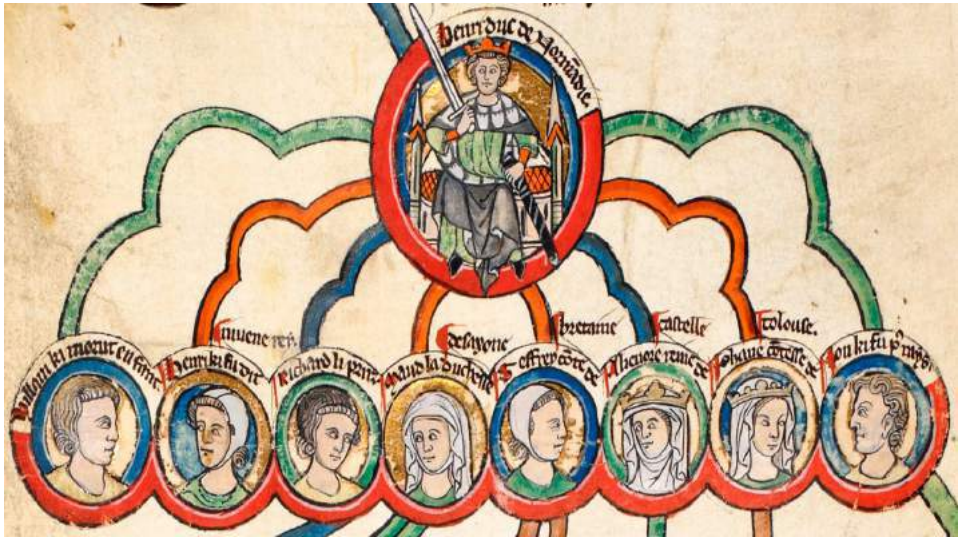 henri duc de Normādie.
Will'om ki morut en
henri ki fu dit
iuuene rey.
Richard li
Maud la duchesse
de saxone
Geffrey cōte de
bretaine
Alienore reine de
castelle
Iohane cōtesse de
tolouse.
Ion ki fu